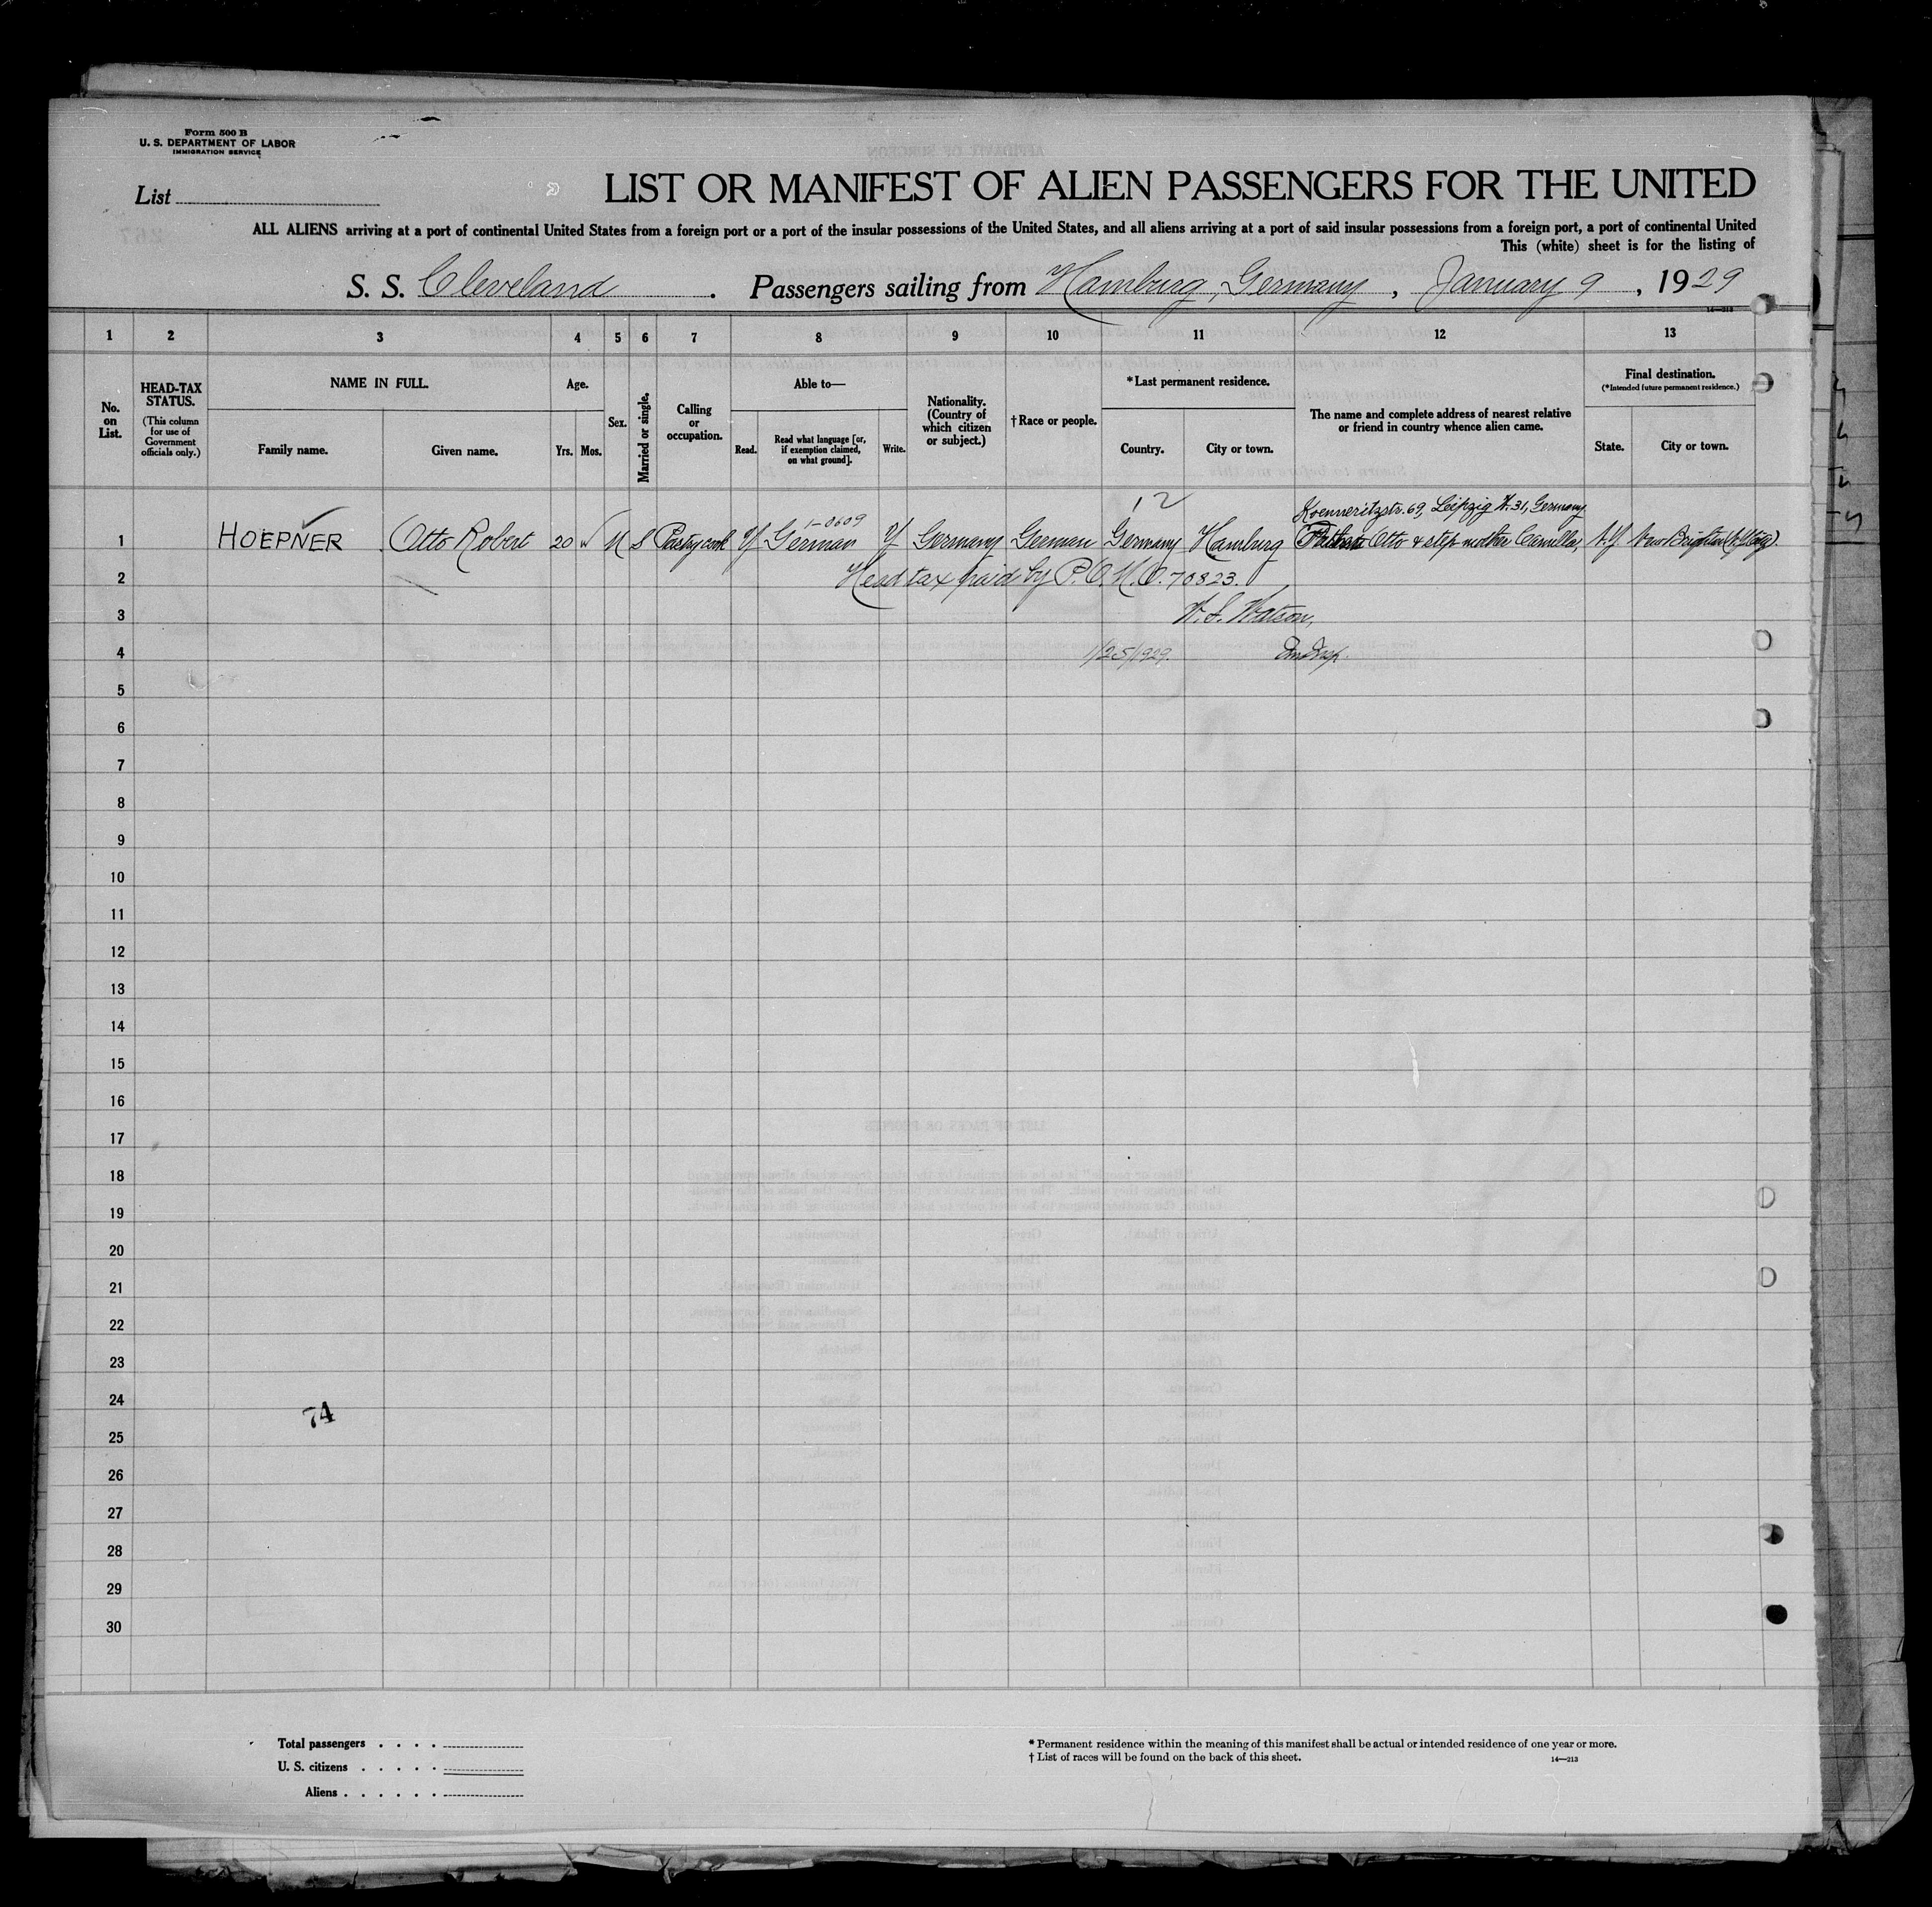 Form 500 B
U. S. DEPARTMENT OF LABOR
IMMIGRATION SERVICE
List
LIST OR MANIFEST OF ALIEN PASSENGERS FOR THE UNITED
ALL ALIENS arriving at a port of continental United States from a foreign port or a port of the insular possessions of the United States, and all aliens arriving at a port of said insular possessions from a foreign port, a port of continental United
This (white) sheet is for the listing of
S. S. Cleveland . Passengers sailing from Hamburg, Germany , January 9 , 1929
14—213
1 2 3 4 5 6 7 8 9 10 11 12 13
No. on List.
HEAD-TAX STATUS.
(This column for use of Government officials only.)
NAME IN FULL.
Family name.
Given name.
Age.
Yrs.
Mos.
Sex.
Married or single.
Calling or occupation.
Able to—
Read.
Read what language [or, if exemption claimed, on what ground].
Write.
Nationality. (Country of which citizen or subject.)
† Race or people.
*Last permanent residence.
Country.
City or town.
The name and complete address of nearest relative or friend in country whence alien came.
Final destination.
(*Intended future permanent residence.)
State.
City or town.
12
Koenneritzstr. 69, Leipzig W. 31, Germany
1-0609
1 HOEPNER Otto Robert 20 M S Pastry cook Y German Y Germany German Germany Hamburg Otto & step mother Camilla, N.Y. New Brighton
2 Head tax paid by P.O.M.O. 70823.
3 W. S. Watson,
4 1/25/1929. Imm Insp.
5
6
7
8
9
10
11
12
13
14
15
16
17
18
19
20
21
22
23
24
74
25
26
27
28
29
30
Total passengers . . . .
U. S. citizens . . . . .
Aliens . . . . . .
* Permanent residence within the meaning of this manifest shall be actual or intended residence of one year or more.
† List of races will be found on the back of this sheet.
14—213